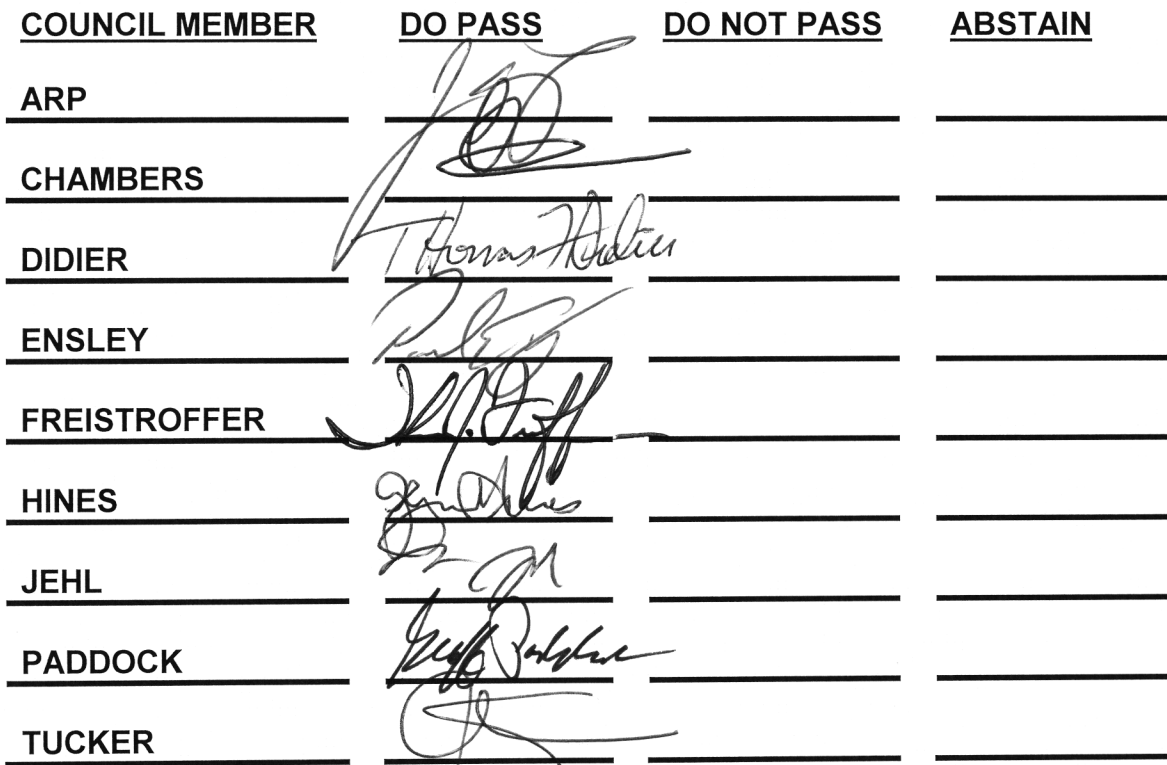 COUNCIL MEMBER DO PASS DO NOT PASS ABSTAIN
ARP
CHAMBERS
DIDIER Thomas F Didier
ENSLEY Paul
FREISTROFFER
HINES Hines
JEHL
PADDOCK Geoff Paddock
TUCKER